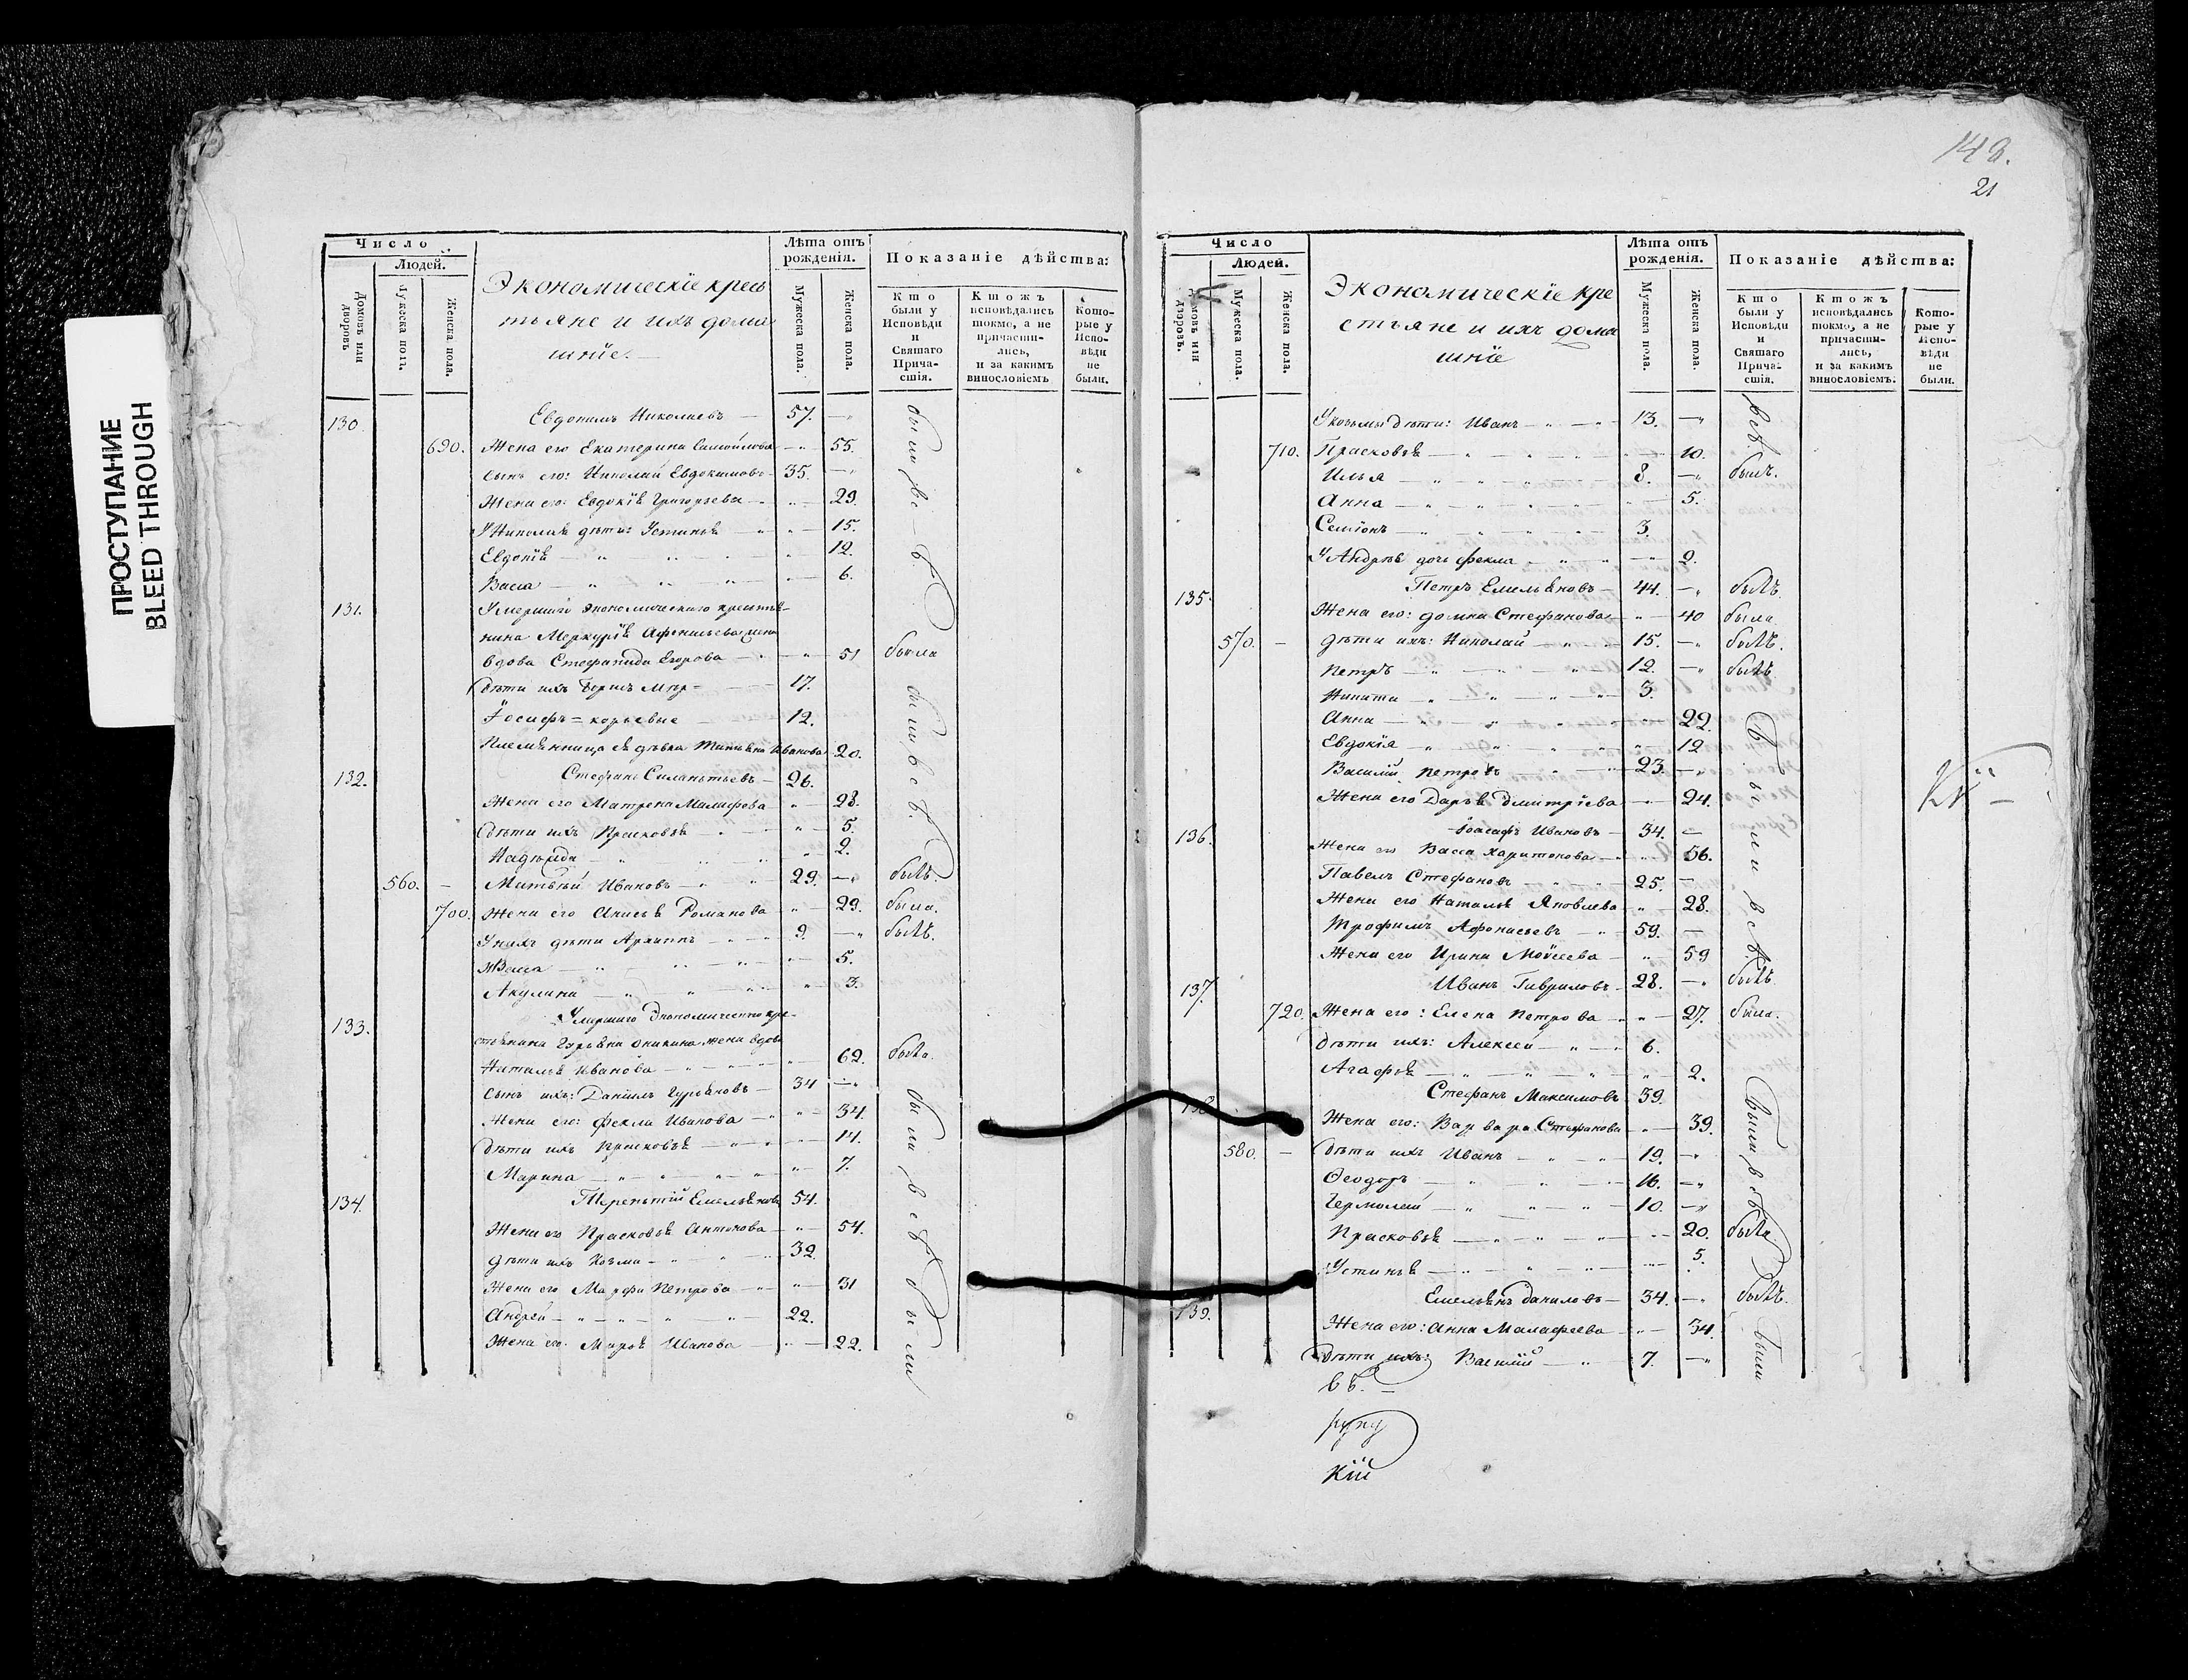 ПРОСТУПАНИЕ
BLEED THROUGH
Число
Людей.
Домовъ или дворовъ
Мужеска пола.
Женска пола.
Экономическіе кресь
тьяне и ихъ дома
шніе.
Лѣта отъ рожденія.
Мужеска пола.
Женска пола.
Показаніе дѣйства:
Кто были у Исповѣди и Святаго Причастія.
Ктожъ исповѣдались токмо, а не причастились, и за какимъ винословіемъ
Которые у Исповѣди не были.
130. Евдокимъ Николаевъ — 57.
690. Жена его Екатерина Самойлова — 55.
сынъ его: Николай Евдокимовъ — 35.
Жена его: Евдокіѣ Григорьева — 29.
У Николаѣ дѣти: Устиньѣ — 15.
Евдокіѣ — 12.
Васса — 6.
были всѣ
131. Умершаго экономическаго крестьѣ-
нина Меркуріѣ Афонасьева жена
вдова Стефанида Егорова — 51 была
дѣти ихъ Борисъ Мер= — 17.
Іосифъ = курьевые — 12.
Племѣнница еѣ дѣвка Татьѣна Иванова 20.
132. Стефанъ Силантьевъ — 26.
Жена его Матрена Малафѣева — 28.
дѣти ихъ Прасковьѣ — 5.
Надѣжда — 2.
были всѣ
560. Матвѣй Ивановъ — 29. былъ.
700. Жена его Анисьѣ Романова — 29. была.
У нихъ дѣти Архиппъ — 9. былъ.
Васса — 5.
Акулина — 3.
133. Умершаго Экономическаго кре-
стьѣнина Гурьѣна Аникина жена вдова
Натальѣ Иванова — 62. была.
сынъ ихъ: Даніилъ Гурьѣновъ — 34
Жена его: Фекла Иванова — 34.
дѣти ихъ Прасковьѣ — 14.
Марина — 7.
134. Терентій Емельѣновъ 54.
Жена его Прасковьѣ Антонова — 54.
дѣти ихъ Козма — 32.
Жена его Марфа Петрова — 31
Андрей — 22.
Жена его Марьѣ Иванова — 22.
были всѣ
были
148.
21
Число
Людей.
Домовъ или дворовъ.
Мужеска пола.
Женска пола.
Экономическіе кре
стьяне и ихъ дома
шніе
Лѣта отъ рожденія.
Мужеска пола.
Женска пола.
Показаніе дѣйства:
Кто были у Исповѣди и Святаго Причастія.
Ктожъ исповѣдались токмо, а не причастились, и за какимъ винословіемъ.
Которые у Исповѣди не были.
У козьмы дѣти: Иванъ — 13. всѣ
710. Прасковьѣ — 10.
Илья — 8. былъ.
Анна — 5.
Семіонъ — 3.
У Андрѣѣ дочь Фекла — 2.
135. Петръ Емельѣновъ — 44. былъ
Жена его: Домна Стефанова — 40 была
570. дѣти ихъ: Николай — 15. былъ.
Петръ — 12. былъ
Никита — 3.
Анна — 22.
Евдокія — 12
Василій Петровъ — 23.
Жена его Дарьѣ Дмитріева — 24.
136. Іоасафъ Ивановъ — 34.
Жена его Васса Харитонова — 36.
Павелъ Стефановъ — 25.
Жена его Натальѣ Яковлева — 28.
Трофимъ Афонасьевъ — 59.
Жена его Ирина Моисеева — 59
были всѣ
137. Иванъ Гавриловъ — 28. былъ
720. Жена его: Елена Петрова — 27. была.
Дѣти ихъ: Алексей — 6.
Агафьѣ — 2.
138. Стефанъ Максимовъ 39.
Жена его: Варвара Стефанова 39.
580. дѣти ихъ Иванъ — 19.
Ѳеодоръ — 16.
Ермолай — 10.
Прасковьѣ — 20. была
Устиньѣ — 5.
были всѣ
139. Емельѣнъ Даниловъ — 34. былъ.
Жена его: Анна Малафеева — 34.
Дѣти ихъ: Василій — 7.
были
Кїй